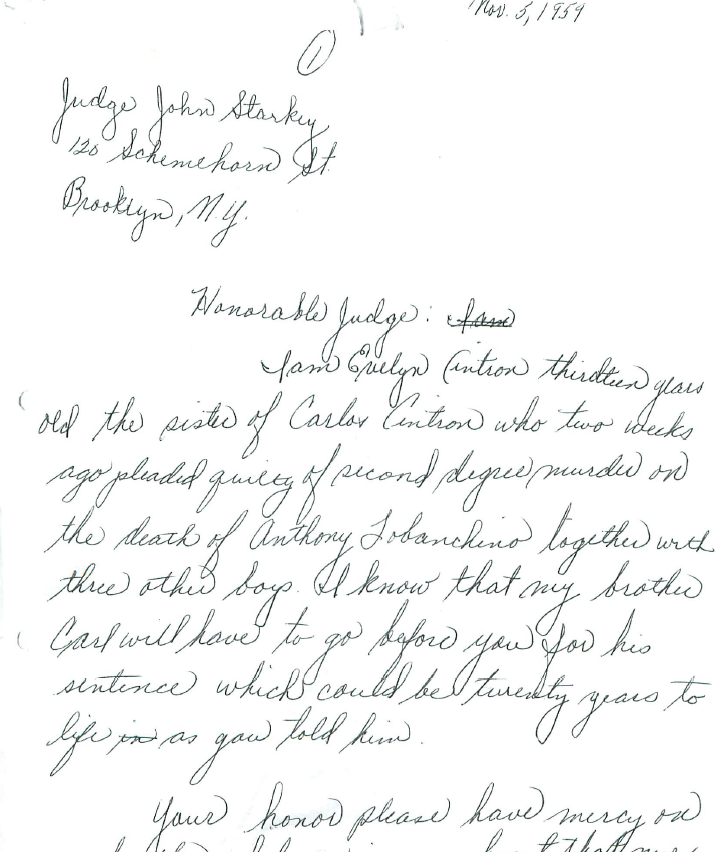 Nov. 5, 1959
1
Judge John Starkey
120 Schemehorn St.
Brooklyn, N.Y.
Honorable Judge: I am
I am Evelyn Cintron thirdteen years
old the sister of Carlos Cintron who two weeks
ago pleaded guilty of second degree murder on
the death of Anthony Lobanchino together with
three other boys. I know that my brother
Carl will have to go before you for his
sentence which could be twenty years to
life in as you told him.
Your honor please have mercy on
that my